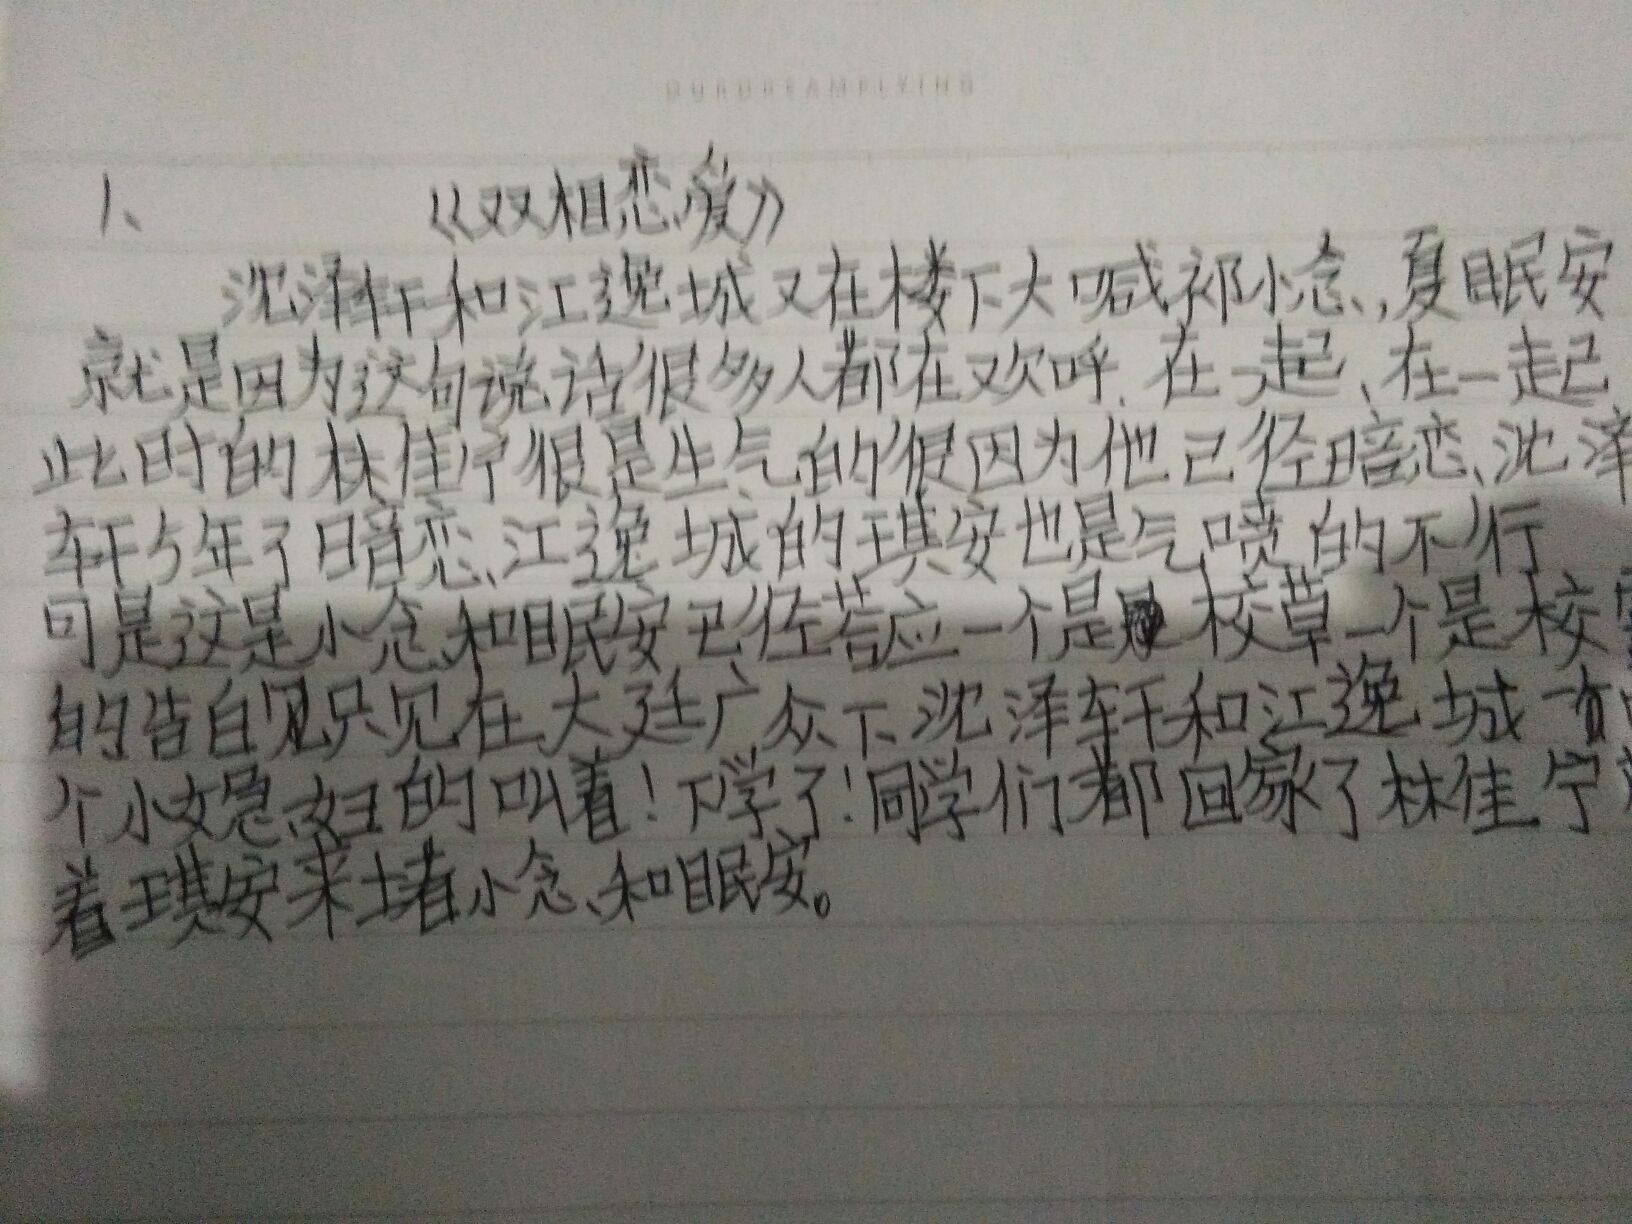 OURDREAMFLYING
1、 《双相恋爱》
沈泽轩和江逸城又在楼下大喊祁小念,夏眠安
就是因为这句说话很多人都在欢呼、在一起、在一起
此时的林佳宁很是生气的很因为他已经暗恋沈泽
轩5年了暗恋江逸城的琪安也是气喷的不行
可是这是小念和眠安已经答应一个是校草一个是校
的告白见只见在大廷广众下、沈泽轩和江逸城一
个小媳妇的叫着！下学了！同学们都回家了林佳宁
着琪安来堵小念和眠安。